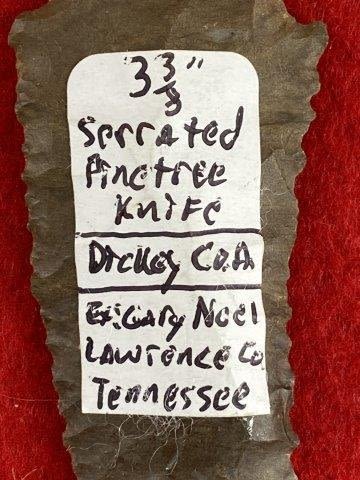 3 3/8"
Serrated
Pinetree
Knife
Dickey C.O.A.
Ex: Gary Noel
Lawrence Co
Tennessee